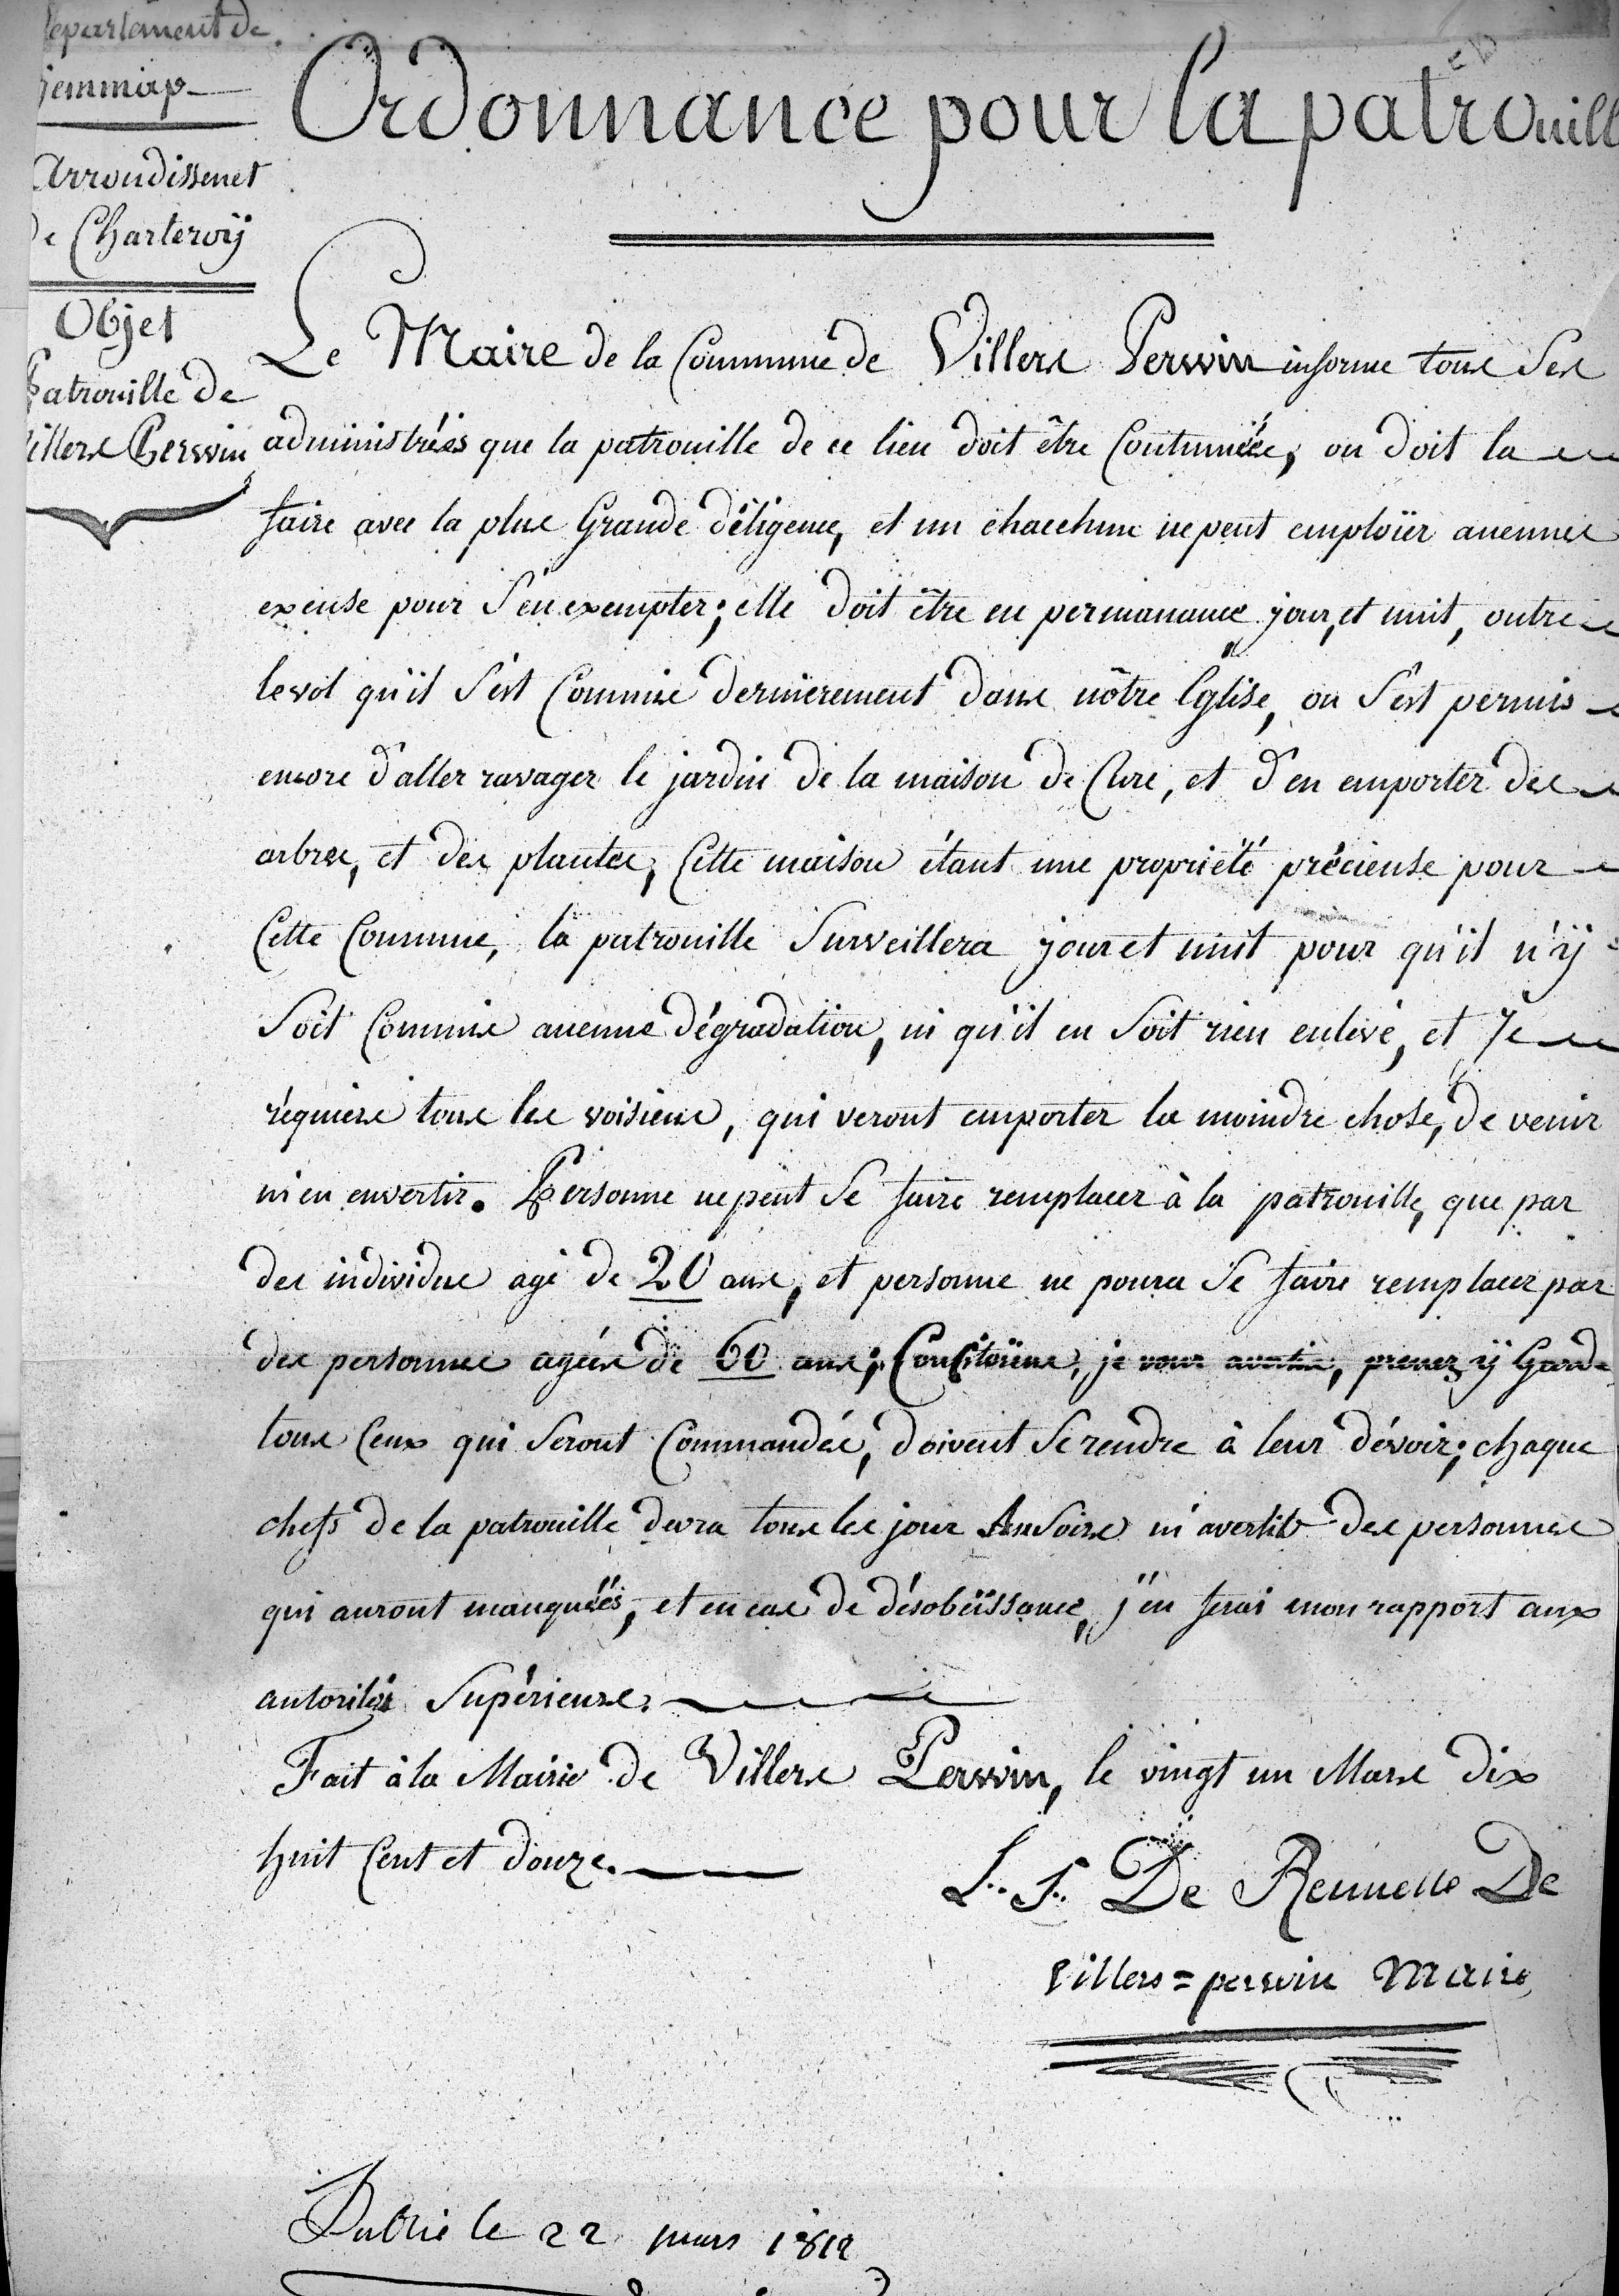 epartement de
jemmap
Arrondissemet
de Charleroÿ
Objet
Patrouille de
Villers Perwin
Ordonnance pour la patrouill
Le Maire de la Commune de Villers Perwin informe tous Ses
administrées que la patrouille de ce lieu doit être Continuéée, on doit la
faire avec la plus Grande déligence, et un chacchune ne peut emploïer aucunnes
excuse pour S'en exempter; elle doit être en permanance jour, et nuit, outre
le vol qu'il S'est Commis dernierement dans nôtre Eglise, on S'est permis
encore d'aller ravager le jardin de la maison de Cure, et d'en emporter des
arbres, et des plantes, Cette maison étant une propriété précieuse pour
Cette Commune, la patrouille Surveillera jour et nuit pour qu'il n'ÿ
Soit Commis aucunne dégradation, ni qu'il en Soit rien enlevé, et Je
réquiers tous les voisiens, qui veront emporter la moindre chose, de venir
m'en envertir. Personne ne peut Se faire remplacer à la patrouille, que par
des individus agé de 20 ans, et personne ne poura Se faire remplacer par
des personnes agées de 60 ans; Concitoïens, je vous avertis, prenez ÿ Garde
tous Ceux qui Seront Commandés, doivent Se rendre à leur dévoir; chaque
chefs de la patrouille devra tous les jour Au Soirs m'avertir des personnes
qui auront manquéés, et en cas de désobéissance, j'en ferai mon rapport aux
autorités Supérieurs.
Fait à la Mairie de Villers Perwin, le vingt un Mars dix
huit Cent et douze.
L. F. De Rennette De
Villers=perwin Maire
Publié le 22 mars 1812